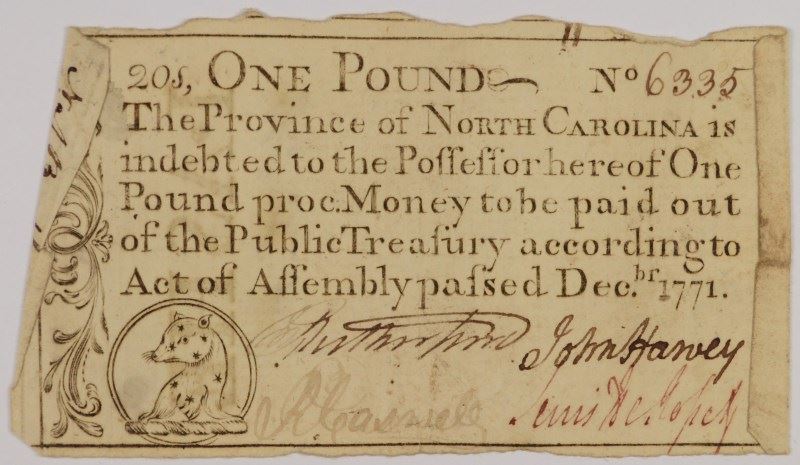 20s, ONE POUND No 6335
The Province of NORTH CAROLINA is
indebted to the Poſſeſſor hereof One
Pound proc. Money to be paid out
of the Public Treaſury according to
Act of Aſſembly paſsed Dec.br 1771.
Rutherfurd John Harvey
R Caswell Lewis De Rosset